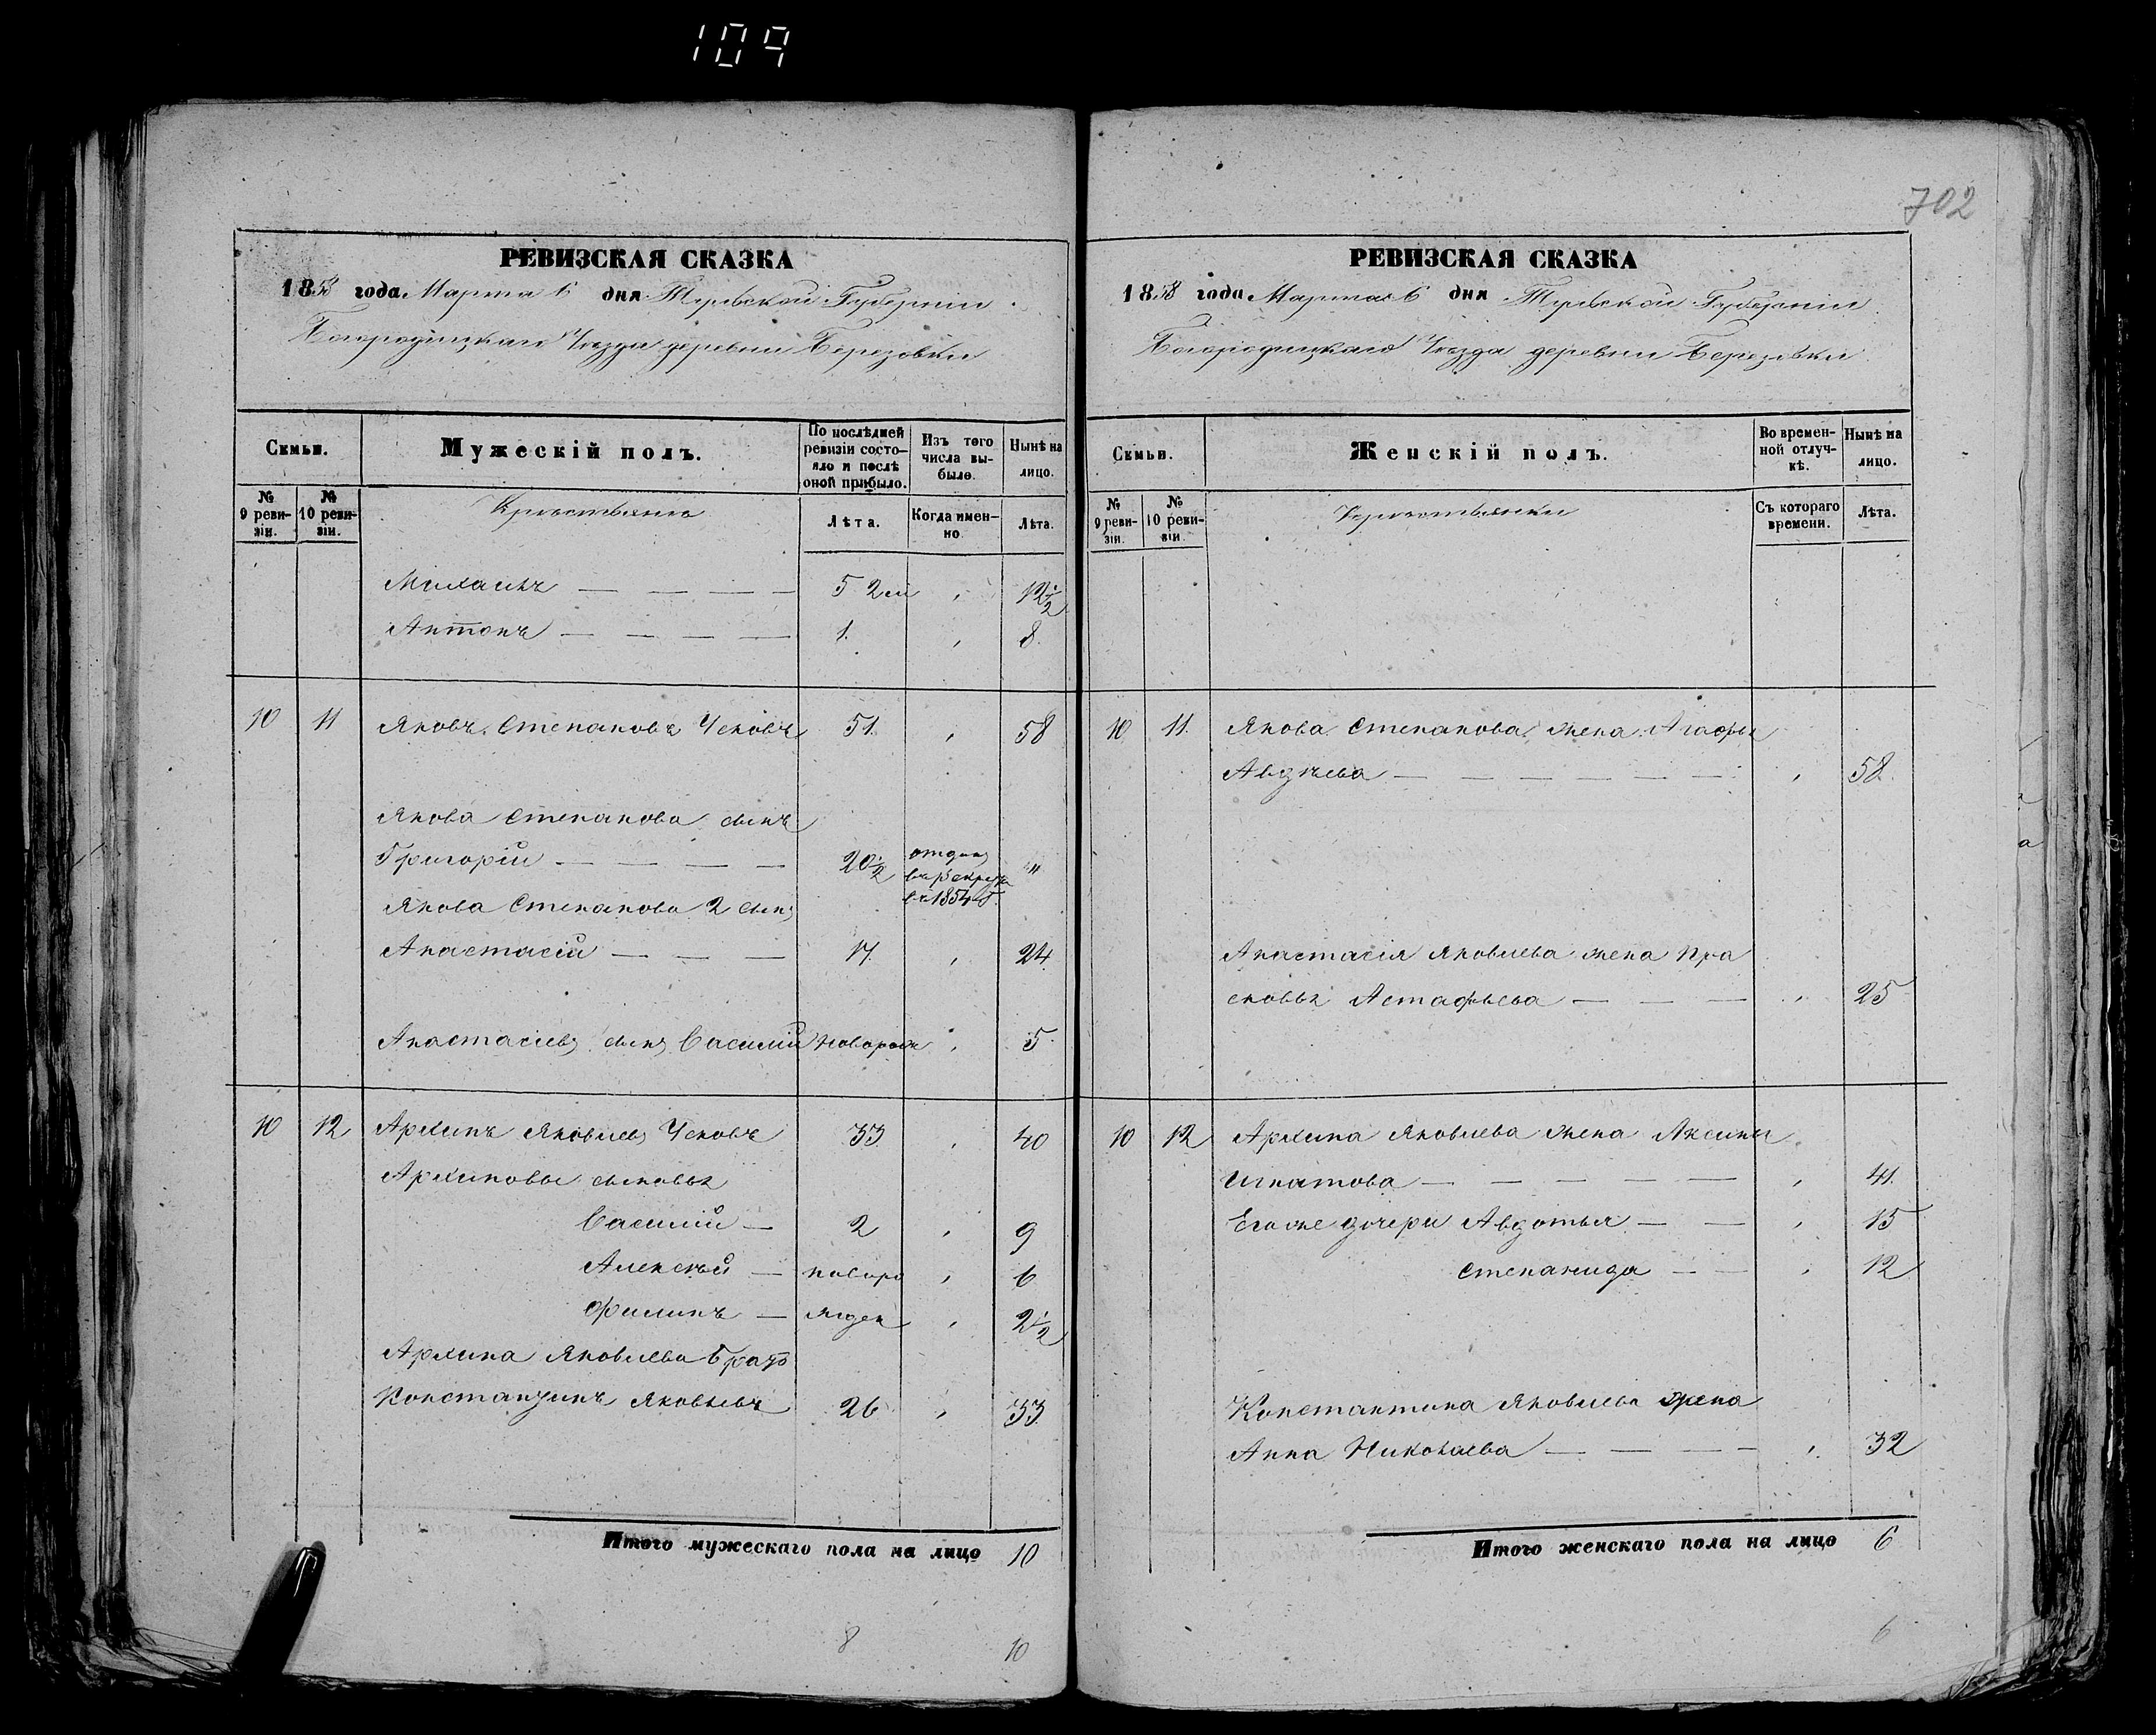 109
702
РЕВИЗСКАЯ СКАЗКА
1858 года Марта 6 дня Тульской Губерніи
Богородицкаго Уѣзда деревни Березовки
Семьи.
Мужескій полъ.
По послѣдней ревизіи состояло и послѣ оной прибыло.
Изъ того числа выбыло.
Нынѣ на лицо.
№ 9 ревизіи.
№ 10 ревизіи.
Крестьяне
Лѣта.
Когда именно.
Лѣта.
Михаилъ — — — — 5 2 й 12 1/2
Антонъ — — — — 1. 8.
10 11 Яковъ Степановъ Чековъ 51. 58
Якова Степанова сынъ
Григорій — — — — 20 1/2 отдан въ рекруты въ 1854 г. "
Якова Степанова 2 сынъ
Анастасій — — — 17. 24.
Анастасіевъ сынъ Василій новорож 5.
10 12 Архипъ Яковлевъ Чековъ 33. 40
Архиповы сыновья
Василій — 2 9
Алексѣй — новоро 6
Филипъ — жден 2 1/2
Архипа Яковлева братъ
Константинъ Яковлевъ 26 33.
Итого мужескаго пола на лицо 10
8 10
РЕВИЗСКАЯ СКАЗКА
1858 года Марта 6 дня Тульской Губерніи
Богородицкаго Уѣзда деревни Березовки
Семьи.
Женскій полъ.
Во временной отлучкѣ.
Нынѣ на лицо.
№ 9 ревизіи.
№ 10 ревизіи.
Крестьянки
Съ котораго времени.
Лѣта.
10 11. Якова Степанова жена Агафья
Авдѣева — — — — — — 58.
Анастасія Яковлева жена Пра
сковья Астафьева — — — 25
10 12 Архипа Яковлева жена Аксинья
Игнатова — — — — — 41.
Его же дочери Авдотья — — 15
Степанида — — 12
Константина Яковлева жена
Анна Николаева — — — — 32
Итого женскаго пола на лицо 6
6